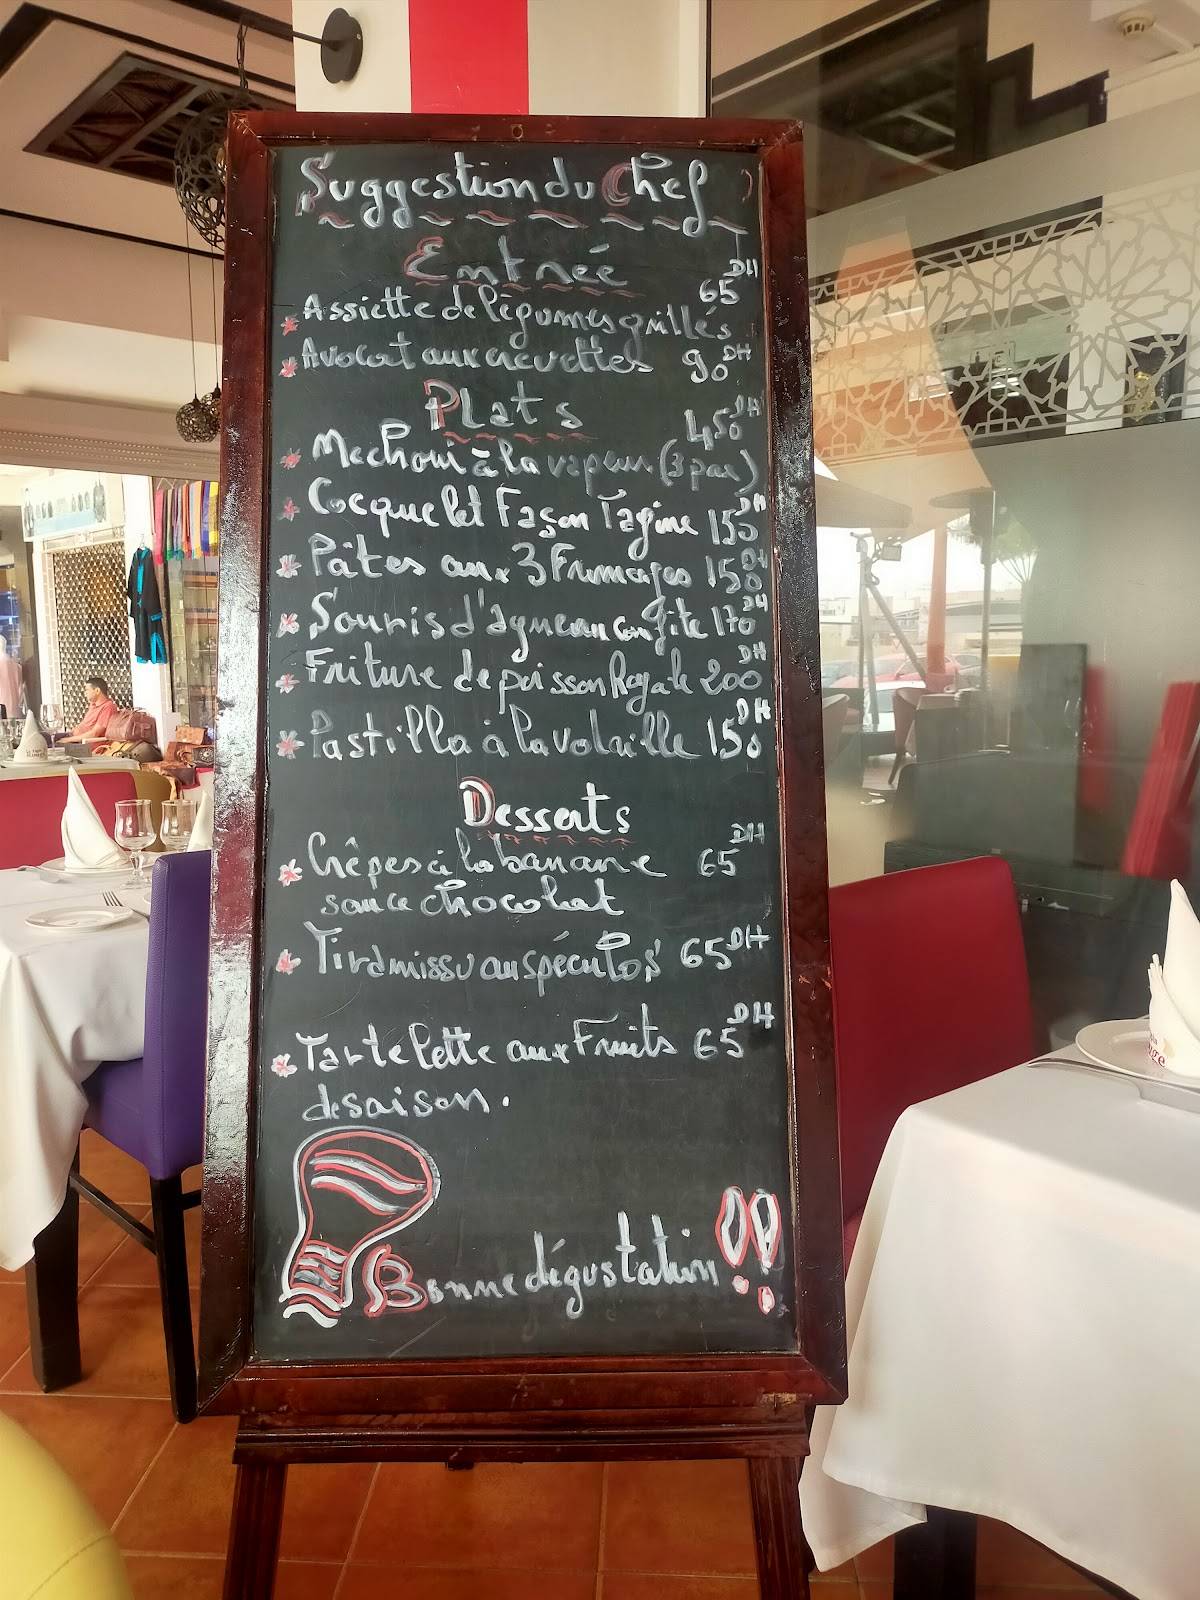 Suggestion du Chef
Entrée
Assiette de légumes grillés 65 DH
Avocat aux crevettes 90 DH
Plats
Mechoui à la vapeur (3 par) 450 DH
Cocquelet Façon Tagine 150 DH
Pâtes aux 3 Frumages 150 DH
Souris d'agneau confite 170 DH
Friture de poisson Royale 200 DH
Pastilla à la volaille 150 DH
Desserts
Crêpes à la banane 65 DH
sauce chocolat
Tiramissu au spéculos 65 DH
Tartelette aux Fruits 65 DH
de saison.
Bonne dégustation !!